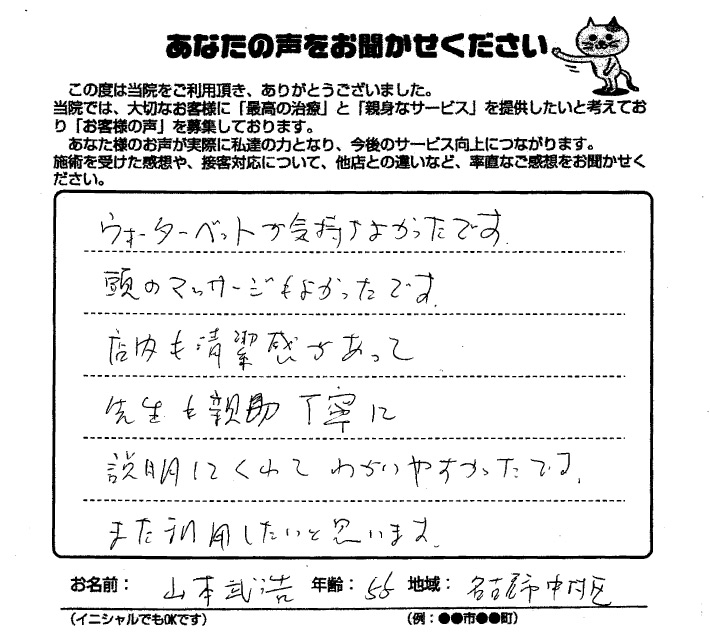 あなたの声をお聞かせください
この度は当院をご利用頂き、ありがとうございました。
当院では、大切なお客様に「最高の治療」と「親身なサービス」を提供したいと考えてお
り「お客様の声」を募集しております。
あなた様のお声が実際に私達の力となり、今後のサービス向上につながります。
施術を受けた感想や、接客対応について、他店との違いなど、率直なご感想をお聞かせく
ださい。
ウォーターベットが気持ちよかったです。
頭のマッサージもよかったです。
店内も清潔感があって
先生も親切丁寧に
説明してくれてわかりやすかったです。
また利用したいと思います。
お名前： 山本武浩 年齢： 56 地域： 名古屋市中村区
（イニシャルでもOKです） （例：●●市●●町）